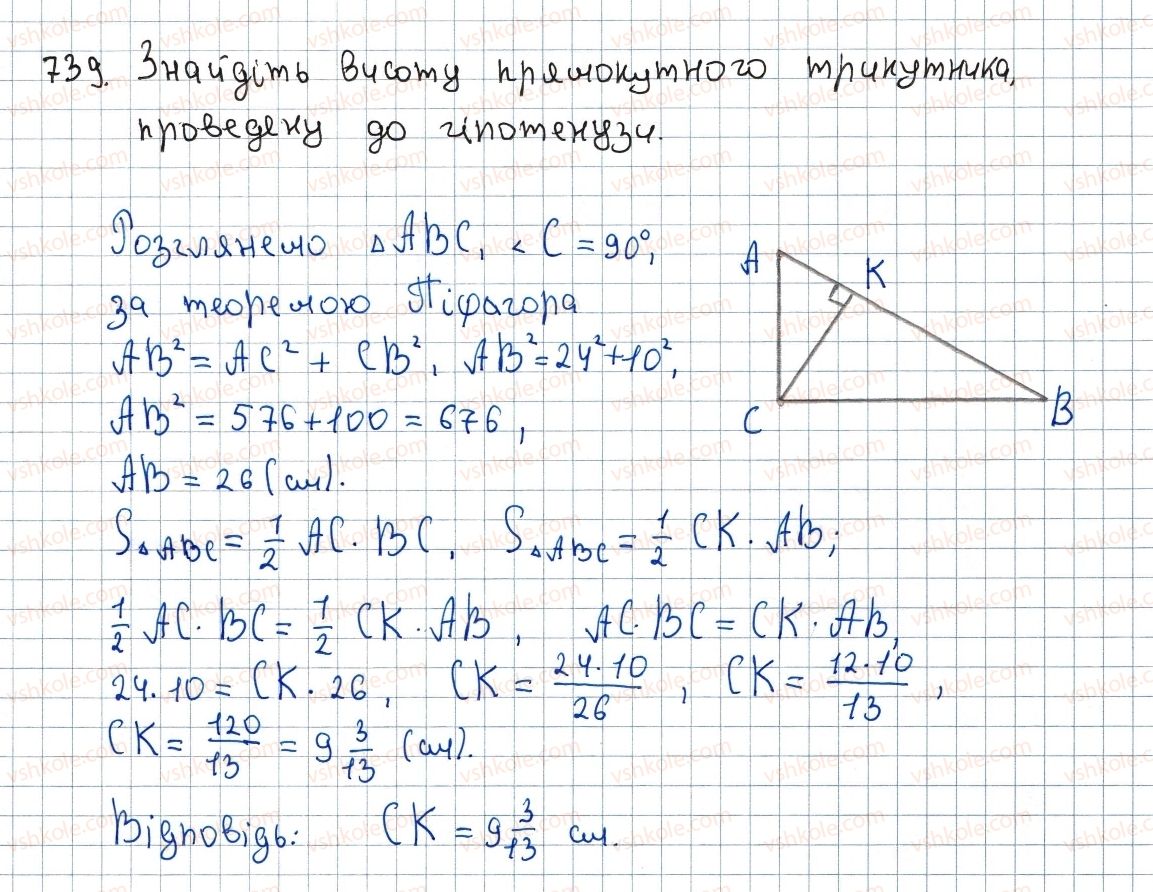 739. Знайдіть висоту прямокутного трикутника,
проведену до гіпотенузи.
Розглянемо △ABC, < C = 90°,
за теоремою Піфагора
AB² = AC² + CB², AB² = 24² + 10²,
AB² = 576 + 100 = 676,
AB = 26 (см).
S△ABC = 1/2 AC · BC, S△ABC = 1/2 CK · AB;
1/2 AC · BC = 1/2 CK · AB, AC · BC = CK · AB,
24 · 10 = CK · 26, CK = 24·10/26, CK = 12·10/13,
CK = 120/13 = 9 3/13 (см).
Відповідь: CK = 9 3/13 см.
A
K
C
B